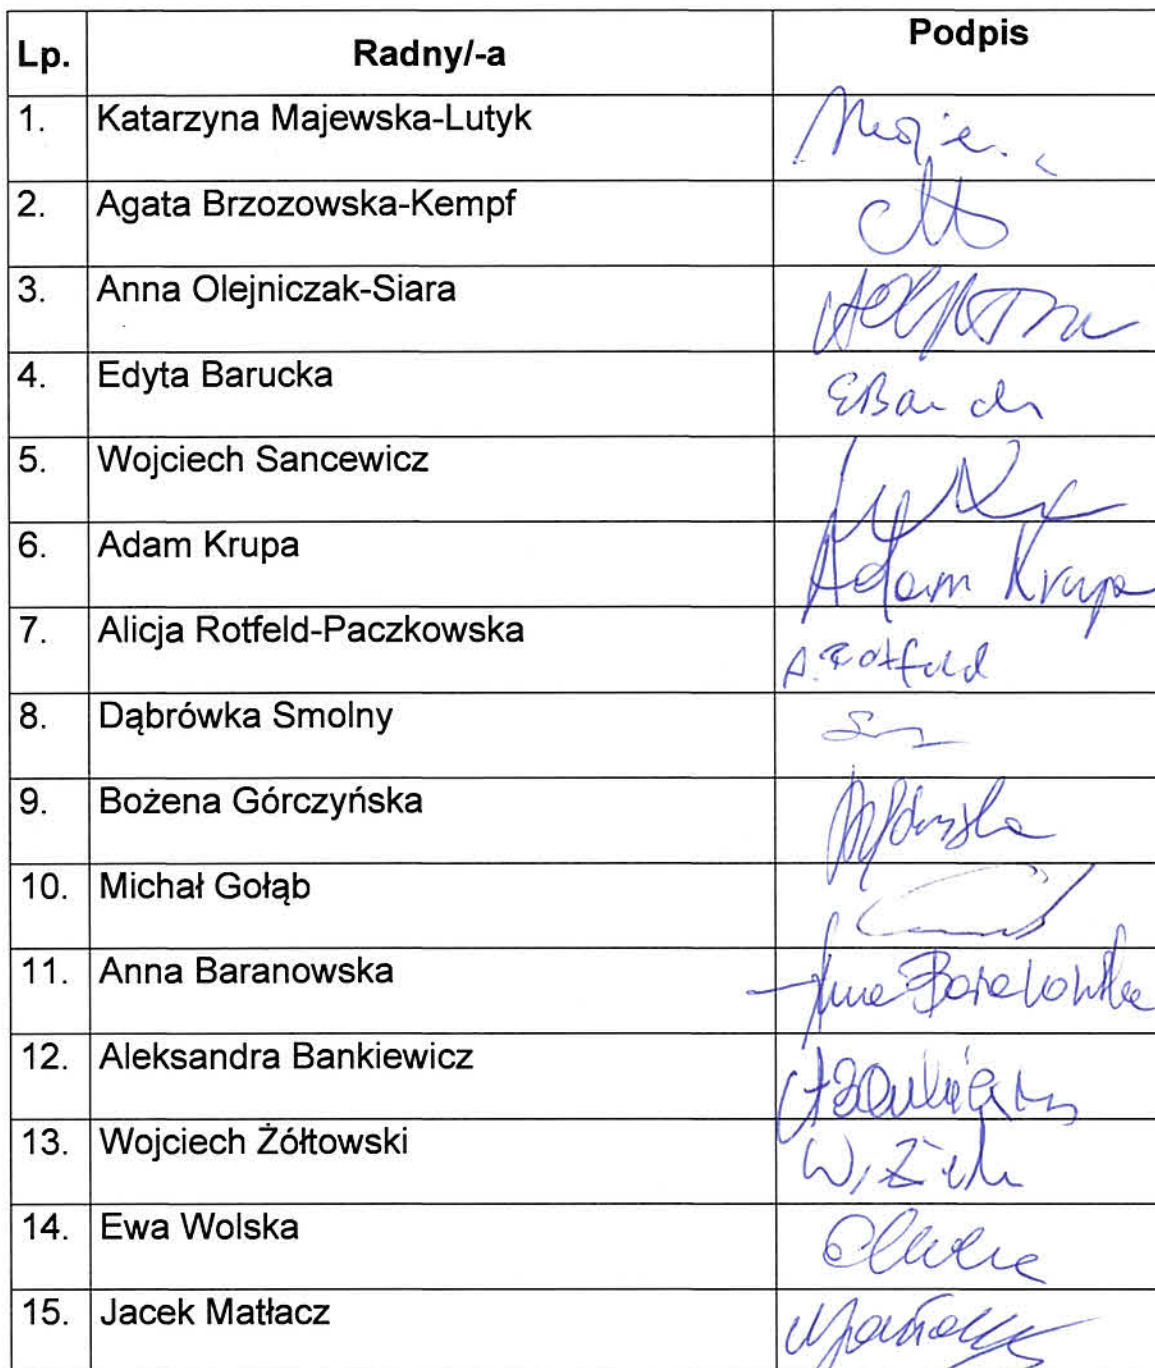 Lp. Radny/-a Podpis
1. Katarzyna Majewska-Lutyk
2. Agata Brzozowska-Kempf
3. Anna Olejniczak-Siara
4. Edyta Barucka
5. Wojciech Sancewicz
6. Adam Krupa Adam Krupa
7. Alicja Rotfeld-Paczkowska A. Rotfeld
8. Dąbrówka Smolny
9. Bożena Górczyńska
10. Michał Gołąb
11. Anna Baranowska Anna Baranowska
12. Aleksandra Bankiewicz
13. Wojciech Żółtowski
14. Ewa Wolska
15. Jacek Matłacz